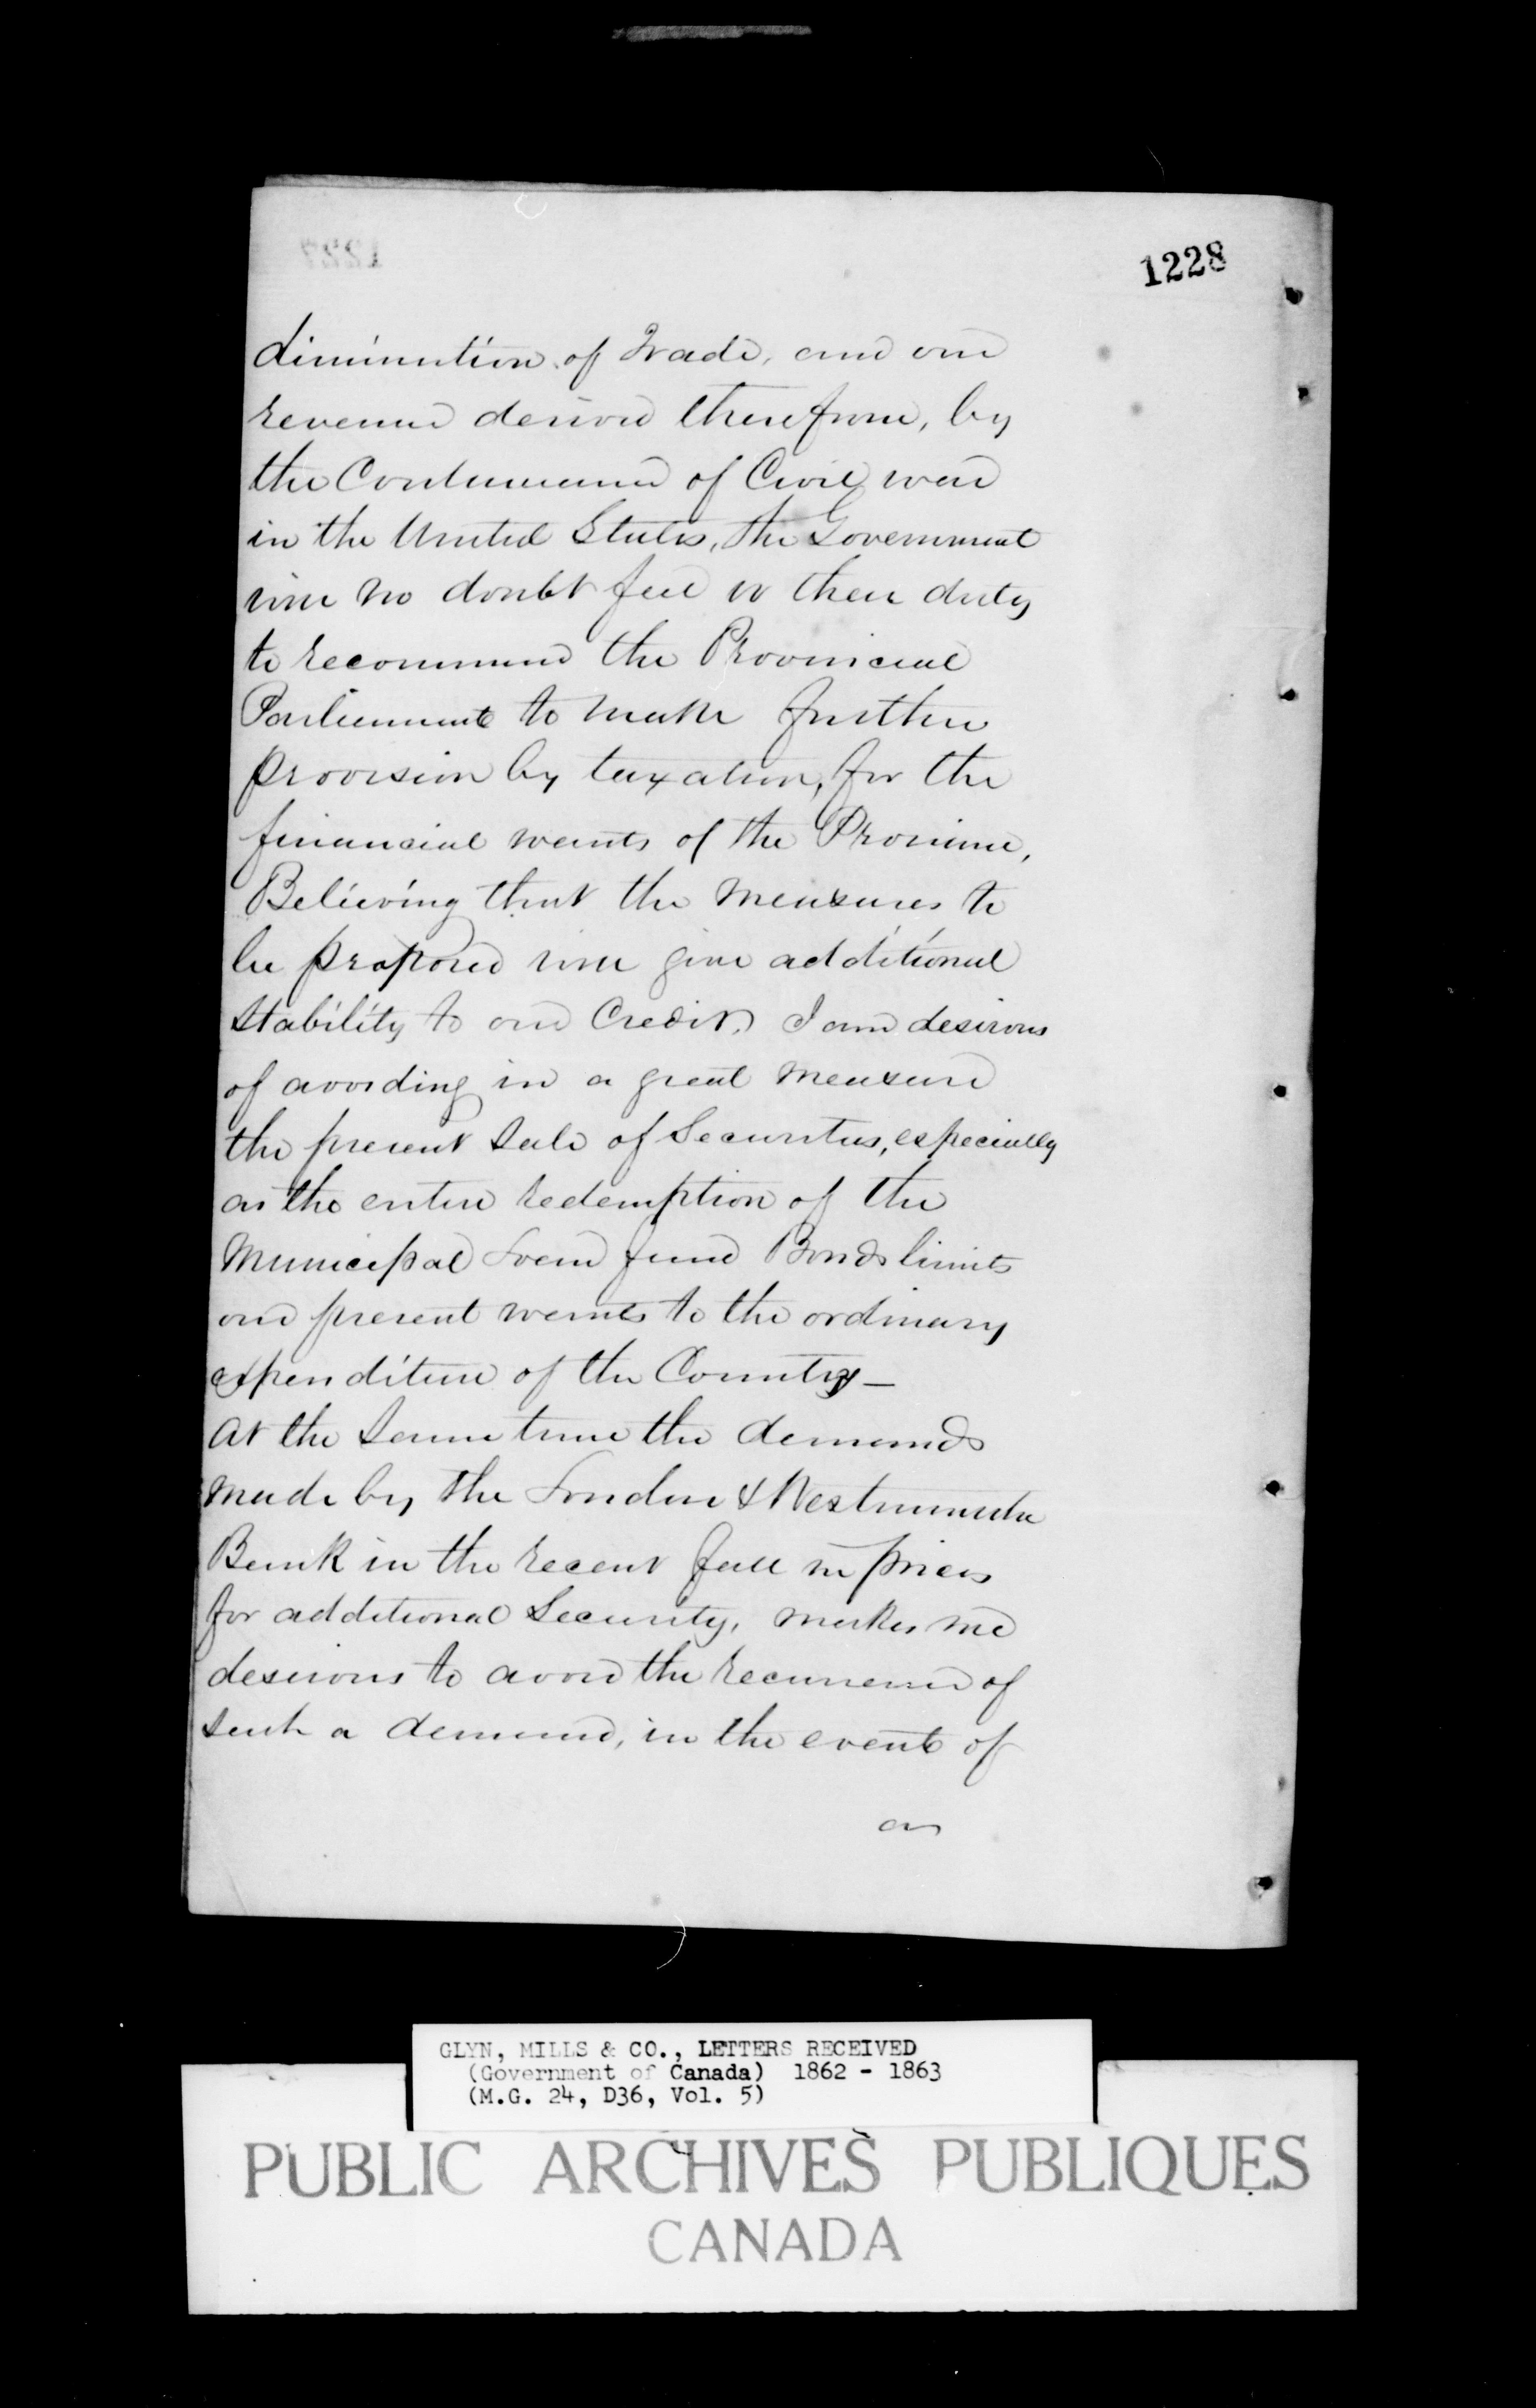 1228
diminution of Trade, and our
revenue derived therefrom, by
the Continuance of Civil war
in the United States, the Government
will no doubt feel it their duty
to recommend the Provincial
Parliament to make further
provision by taxation, for the
financial wants of the Province,
Believing that the measures to
be proposed will give additional
stability to our Credit, I am desirous
of avoiding in a great measure
the present sale of Securities, especially
as the entire redemption of the
Municipal Loan fund Bonds limits
our present wants to the ordinary
expenditure of the Country—
At the same time the demands
made by the London & Westminster
Bank in the recent fall in prices
for additional Security, makes me
desirous to avoid the recurrence of
such a demand, in the event of
a
GLYN, MILLS & CO., LETTERS RECEIVED
(Government of Canada) 1862 - 1863
(M.G. 24, D36, Vol. 5)
PUBLIC ARCHIVES PUBLIQUES
CANADA